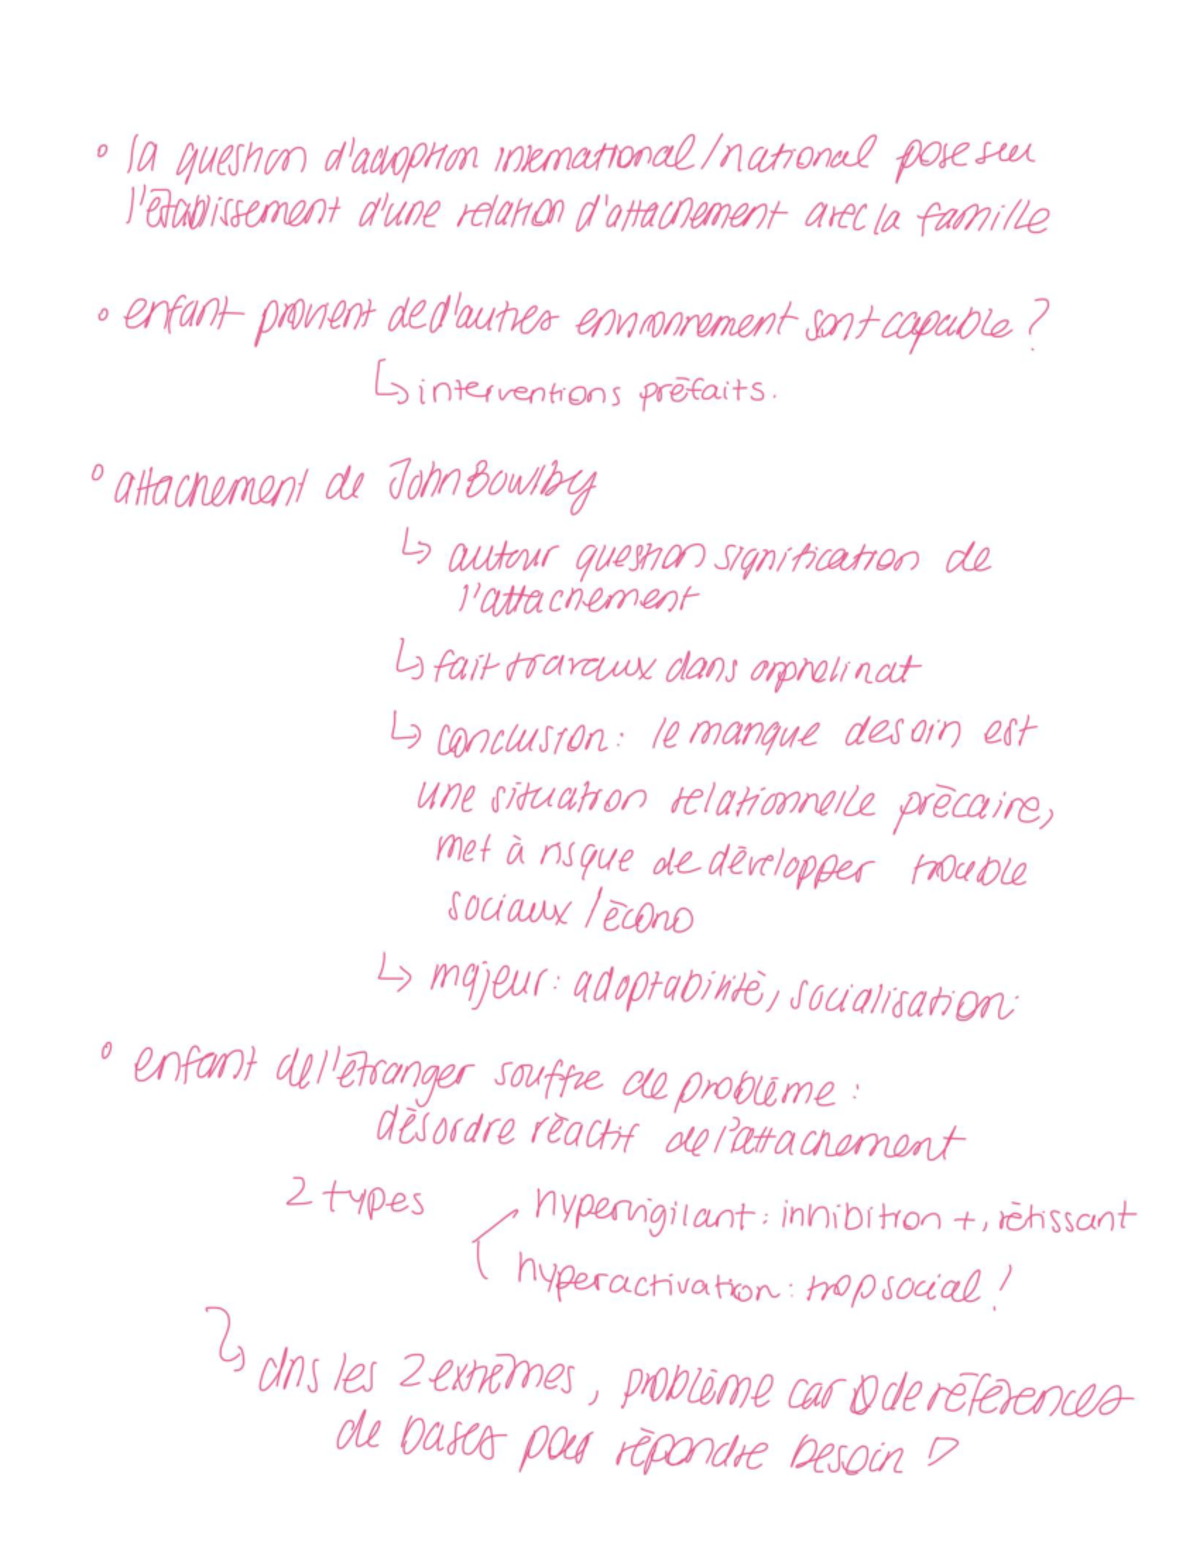 ° la question d'adoption international/national pose sur
l'établissement d'une relation d'attachement avec la famille
° enfant provient de d'autres environnement sont capable ?
↳ interventions préfaits.
° attachement de John Bowlby
↳ autour question signification de
l'attachement
↳ fait travaux dans orphelinat
↳ conclusion : le manque de soin est
une situation relationnelle précaire,
met à risque de développer trouble
sociaux / écono
↳ majeur : adoptabilité, socialisation
° enfant de l'étranger souffre de problème :
désordre réactif de l'attachement
2 types
hypervigilant : inhibition +, rétissant
hyperactivation : trop social !
↳ dns les 2 extrêmes, problème car de références
de bases pour répondre besoin